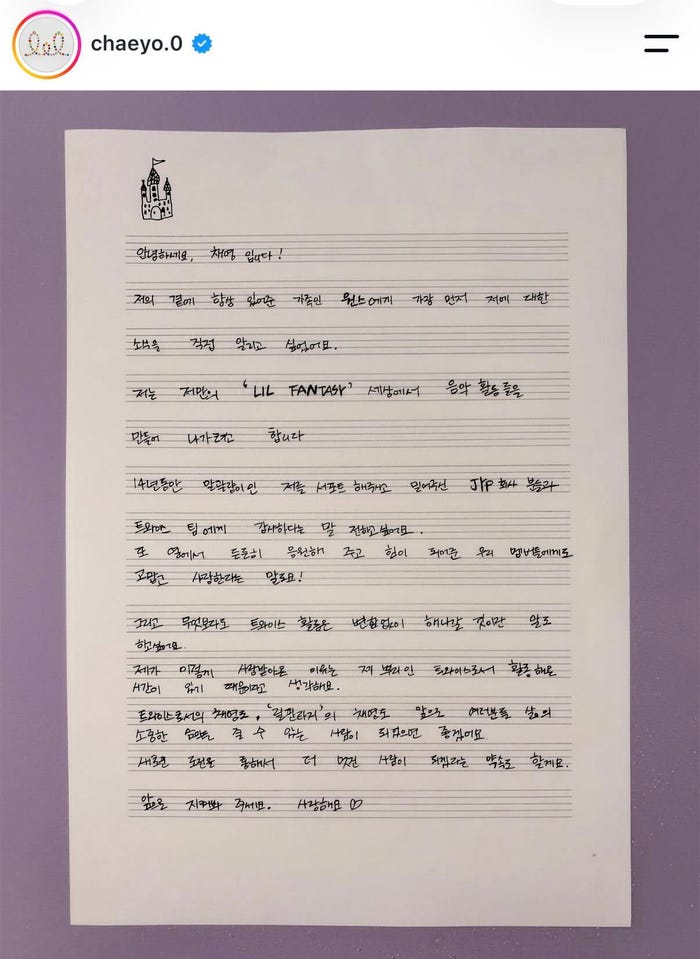 lol
chaeyo.0
안녕하세요, 채영 입니다!
저의 곁에 항상 있어준 가족인 원스에게 가장 먼저 저에 대한
소식을 직접 알리고 싶었어요.
저는 저만의 'LIL FANTASY' 세상에서 음악 활동들을
만들어 나가려고 합니다
14년동안 말괄량이인 저를 서포트 해주시고 밀어주신 JYP 회사 분들과
트와이스 팀에게 감사하다는 말 전하고싶어요.
또 옆에서 든든히 응원해 주고 힘이 되어준 우리 멤버들에게도
고맙고 사랑한다는 말도요!
그리고 무엇보다도 트와이스 활동은 변함없이 해나갈 것이란 말도
하고싶어요.
제가 이렇게 사랑받아온 이유는 제 뿌리인 트와이스로서 활동해온
시간이 있기 때문이라고 생각해요.
트와이스로서의 채영도, '릴판타지'의 채영도 앞으로 여러분들 삶의
소중한 순간을 줄 수 있는 사람이 되었으면 좋겠어요
새로운 도전을 통해서 더 멋진 사람이 되겠다는 약속도 할게요.
앞으로 지켜봐 주세요. 사랑해요 ♡